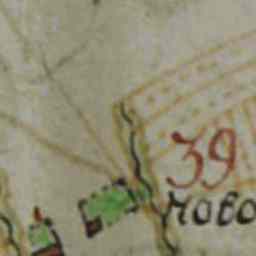 39
ново